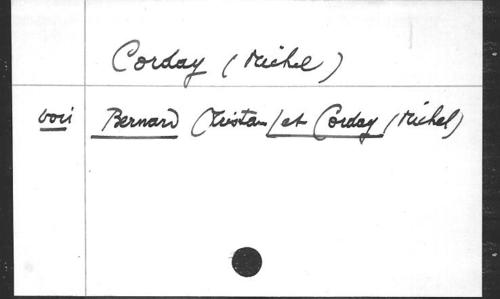 Corday (Michel)
voir Bernard (Tristan) et Corday (Michel)